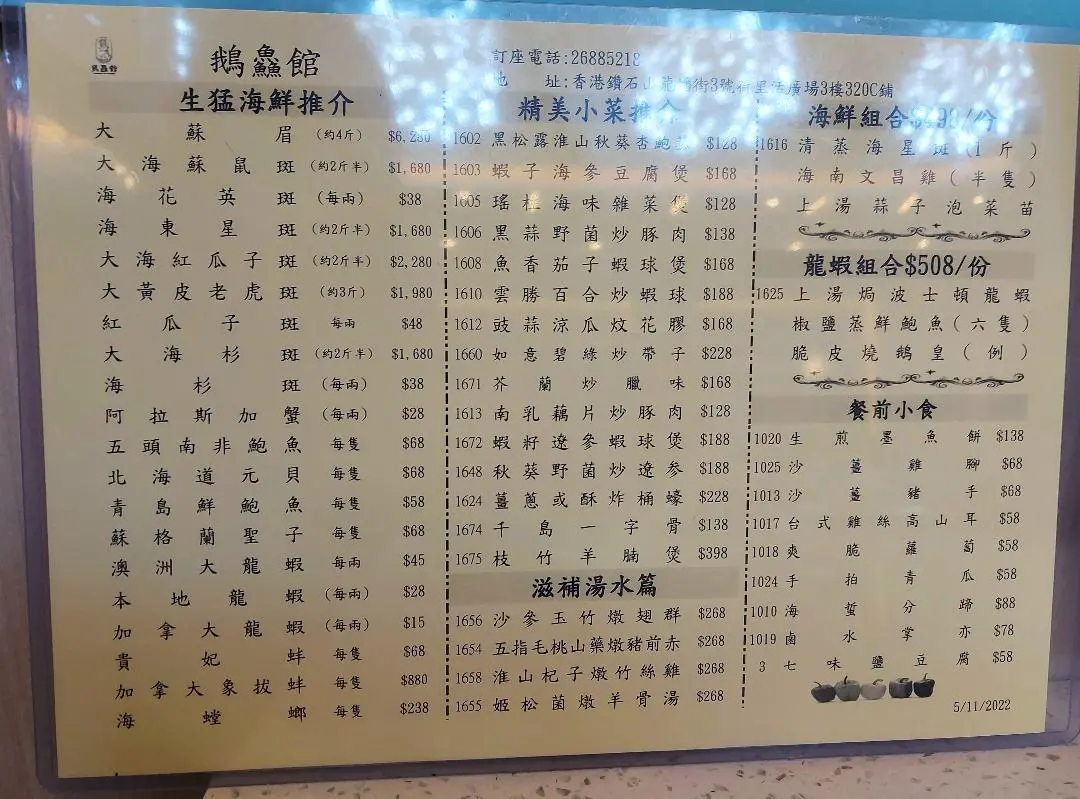 鵝鱻館
訂座電話:26885218
址:香港鑽石山龍蟠街3號荷里活廣場3樓320C鋪
生猛海鮮推介
大蘇眉 (約4斤) $6,280
大海蘇鼠斑 (約2斤半) $1,680
海花英斑 (每兩) $38
海東星斑 (約2斤半) $1,680
大海紅瓜子斑 (約2斤半) $2,280
大黃皮老虎斑 (約3斤) $1,980
紅瓜子斑 每兩 $48
大海杉斑 (約2斤半) $1,680
海杉斑 (每兩) $38
阿拉斯加蟹 (每兩) $28
五頭南非鮑魚 每隻 $68
北海道元貝 每隻 $68
青島鮮鮑魚 每隻 $58
蘇格蘭聖子 每隻 $68
澳洲大龍蝦 每兩 $45
本地龍蝦 (每兩) $28
加拿大龍蝦 (每兩) $15
貴妃蚌 每隻 $68
加拿大象拔蚌 每隻 $880
海螳螂 每隻 $238
精美小菜推介
1602 黑松露淮山秋葵杏鮑 $128
1603 蝦子海參豆腐煲 $168
1605 瑤柱海味雜菜煲 $128
1606 黑蒜野菌炒豚肉 $138
1608 魚香茄子蝦球煲 $168
1610 雲勝百合炒蝦球 $188
1612 豉蒜涼瓜炆花膠 $168
1660 如意碧綠炒帶子 $228
1671 芥蘭炒臘味 $168
1613 南乳藕片炒豚肉 $128
1672 蝦籽遼參蝦球煲 $188
1648 秋葵野菌炒遼参 $188
1624 薑蔥或酥炸桶蠔 $228
1674 千島一字骨 $138
1675 枝竹羊腩煲 $398
滋補湯水篇
1656 沙參玉竹燉翅群 $268
1654 五指毛桃山藥燉豬前赤 $268
1658 淮山杞子燉竹絲雞 $268
1655 姬松菌燉羊骨湯 $268
海鮮組合 /份
1616 清蒸海星斑(1斤)
海南文昌雞(半隻)
上湯蒜子泡菜苗
龍蝦組合$508/份
1625 上湯焗波士頓龍蝦
椒鹽蒸鮮鮑魚(六隻)
脆皮燒鵝皇(例)
餐前小食
1020 生煎墨魚餅 $138
1025 沙薑雞腳 $68
1013 沙薑豬手 $68
1017 台式雞絲高山耳 $58
1018 爽脆蘿蔔 $58
1024 手拍青瓜 $58
1010 海蜇分蹄 $88
1019 鹵水掌亦 $78
3 七味鹽豆腐 $58
5/11/2022